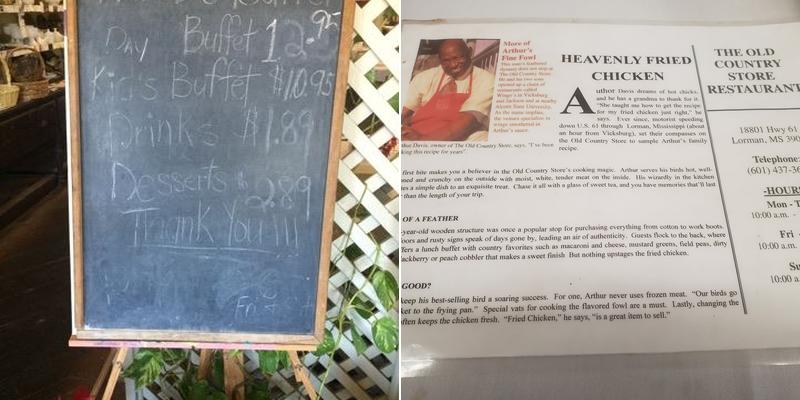 Day Buffet 12.95
Kids Buffet 10.95
Drinks 1.89
Desserts 2.89
Thank You!!!
More of
Arthur's
Fine Fowl
HEAVENLY FRIED
CHICKEN
Author Davis dreams of hot chicks,
and he has a grandma to thank for it.
"She taught me how to get the recipe
for my fried chicken just right," he
says. Ever since, motorist speeding
down U.S. 61 through Lorman, Mississippi (about
an hour from Vicksburg), set their compasses on
the Old Country Store to sample Arthur's family
recipe.
Davis, owner of The Old Country Store, says, "I've been
king this recipe for years".
first bite makes you a believer in the Old Country Store's cooking magic. Arthur serves his birds hot, well-
ned and crunchy on the outside with moist, white, tender meat on the inside. His wizardly in the kitchen
es a simple dish to an exquisite treat. Chase it all with a glass of sweet tea, and you have memories that'll last
than the length of your trip.
OF A FEATHER
-year-old wooden structure was once a popular stop for purchasing everything from cotton to work boots.
oors and rusty signs speak of days gone by, leading an air of authenticity. Guests flock to the back, where
ffers a lunch buffet with country favorites such as macaroni and cheese, mustard greens, field peas, dirty
lackberry or peach cobbler that makes a sweet finish But nothing upstages the fried chicken.
GOOD?
keep his best-selling bird a soaring success. For one, Arthur never uses frozen meat. "Our birds go
ket to the frying pan." Special vats for cooking the flavored fowl are a must. Lastly, changing the
often keeps the chicken fresh. "Fried Chicken," he says, "is a great item to sell."
THE OLD
COUNTRY
STORE
RESTAURANT
18801 Hwy 61
Lorman, MS 390
Telephone:
(601) 437-36
-HOURS
Mon - T
10:00 a.m. -
Fri -
10:00 a.m.
Su
10:00 a.